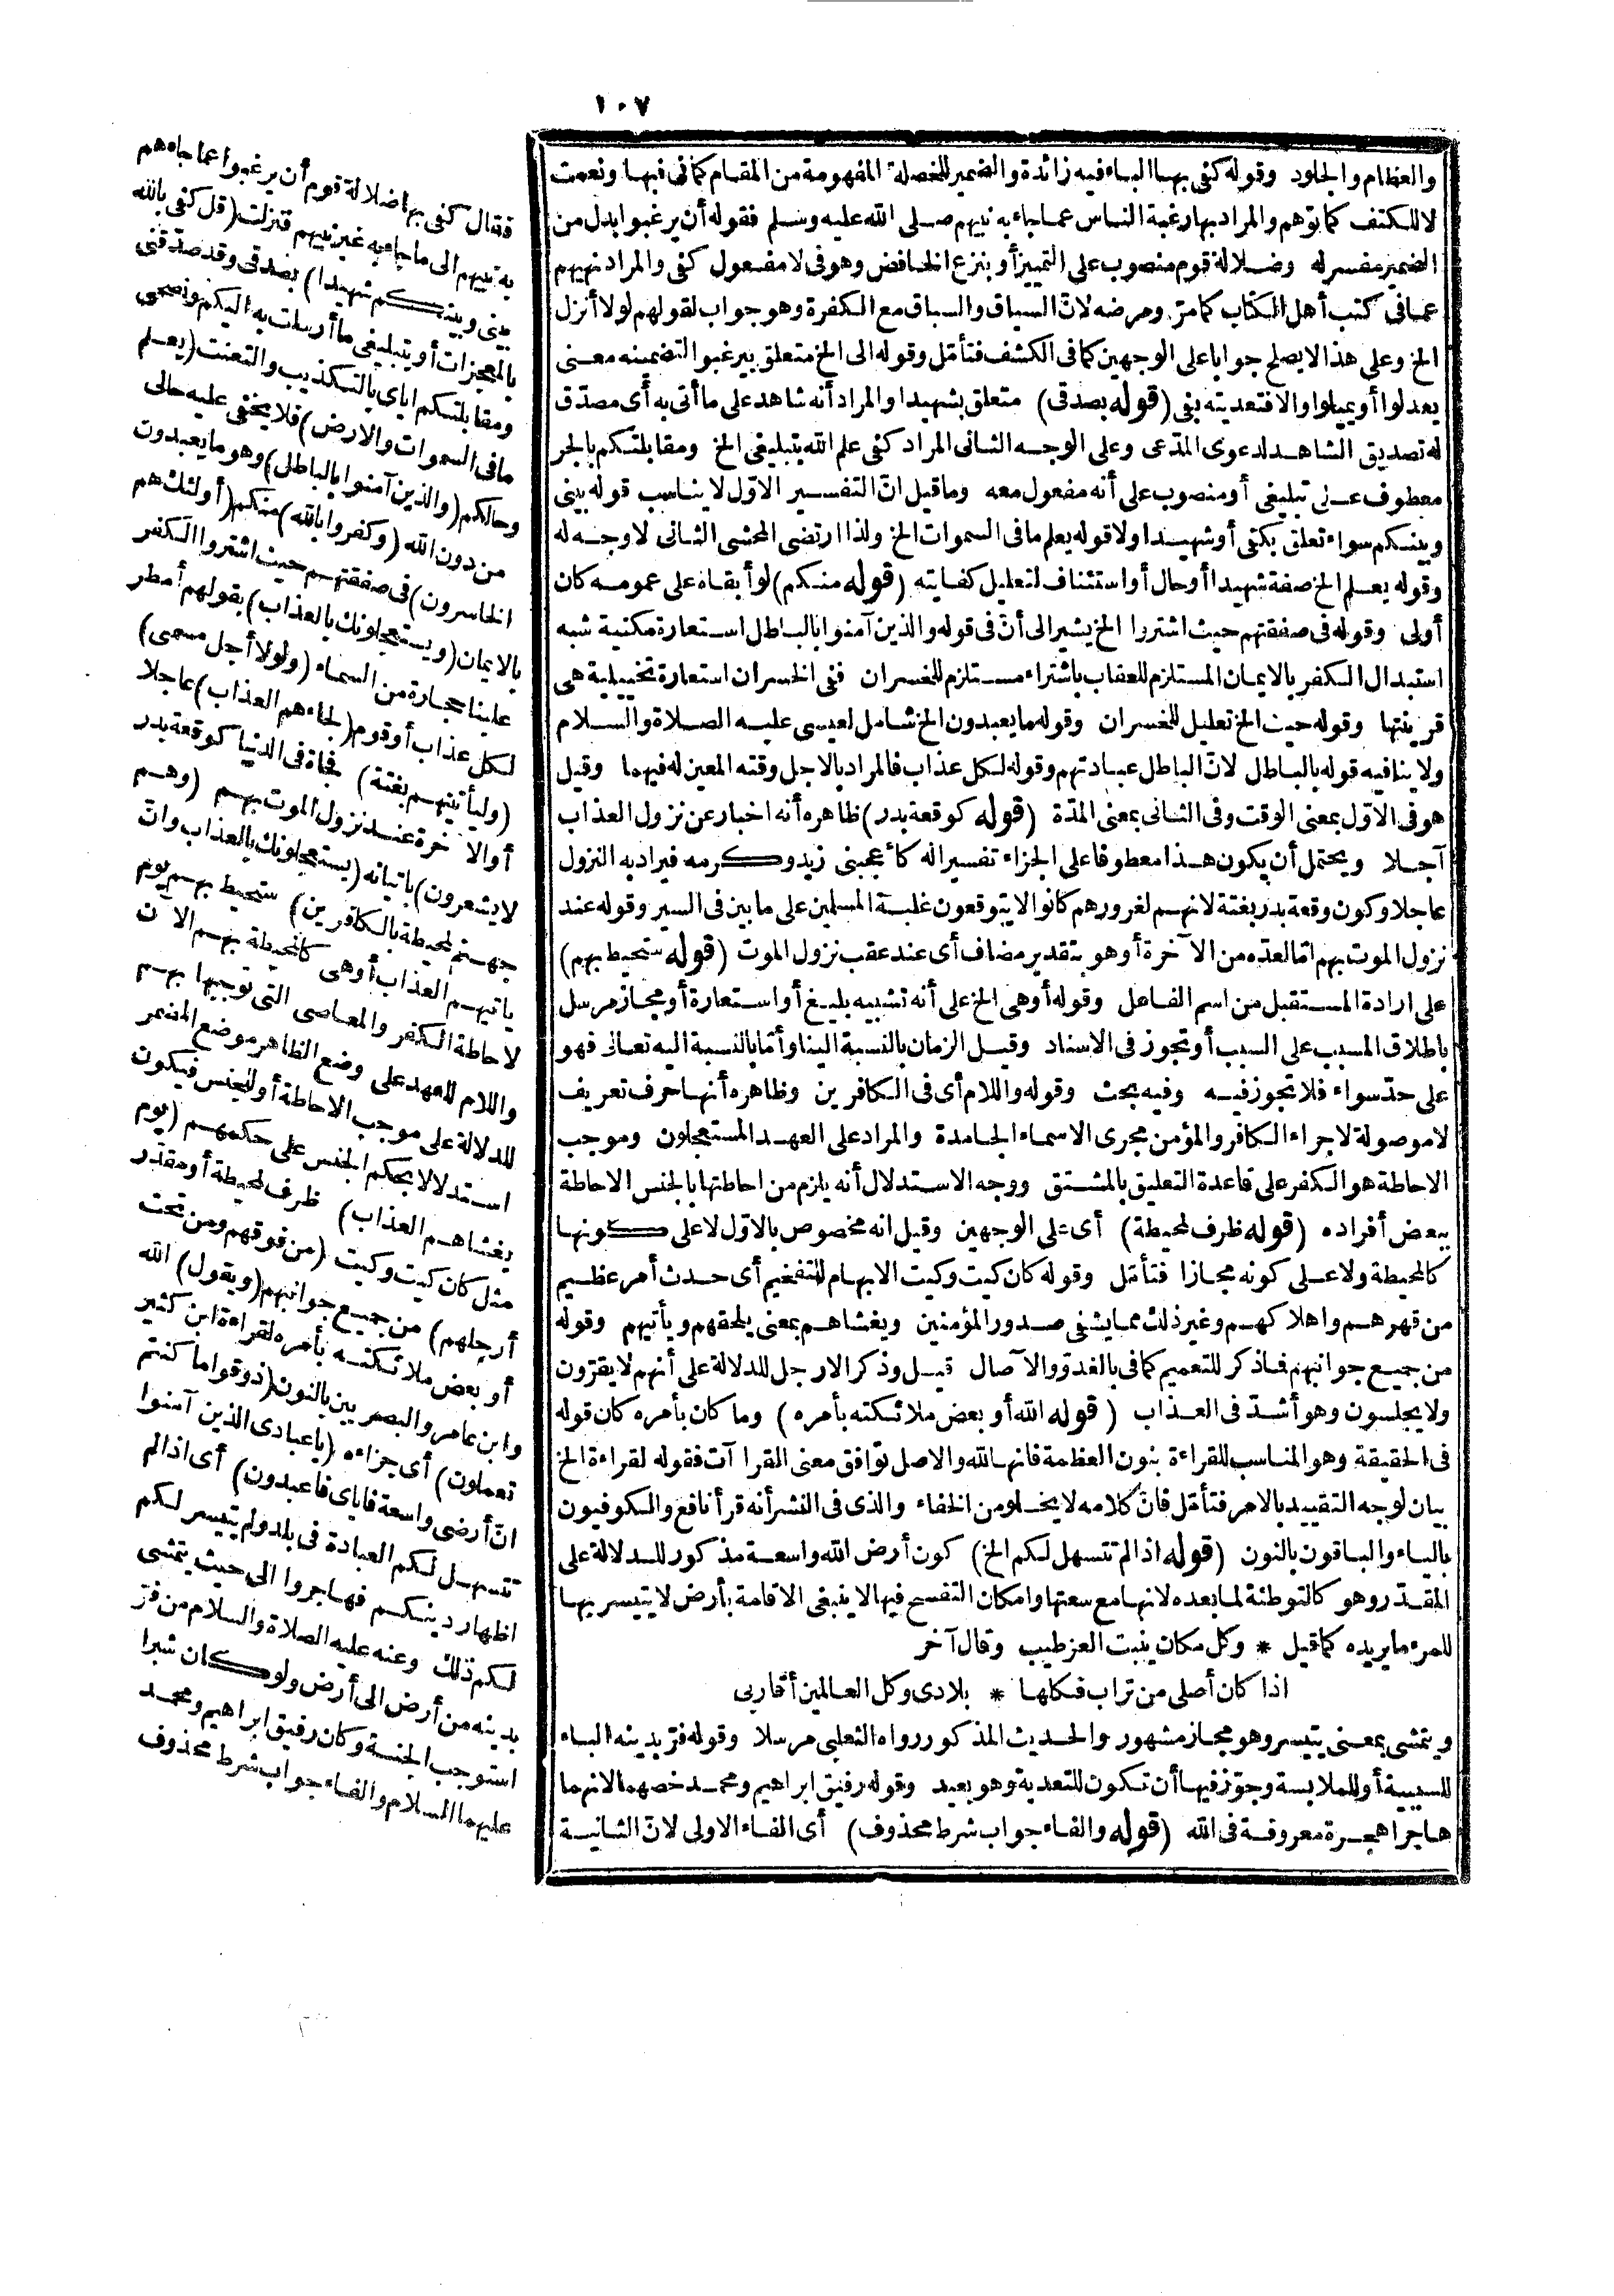 ١٠٧
والعظام والجلود وقوله كفى بها الباء فيه زائدة والضمير للخصلة المفهومة من المقام كما في فبها ونعمت
لا للكتف كما توهم والمراد بها رغبة الناس عما جاء به نبيهم صلى الله عليه وسلم فقوله أن يرغبوا بدل من
الضمير مفسر له وضلالة قوم منصوب على التمييز أو بنزع الخافض وهو في لا مفعول كفى والمراد نهيهم
عما في كتب أهل الكتاب كما مرّ ومرضه لانّ السياق والسباق مع الكفرة وهو جواب لقولهم لولا أنزل
الخ وعلى هذا لا يصلح جوابا على الوجهين كما في الكشف فتأمّل وقوله الى الخ متعلق بيرغبوا لتضمينه معنى
يعدلوا أو يميلوا والا فتعديته بفي (قوله بصدقى) متعلق بشهيدا والمراد أنه شاهد على ما أتى به أى مصدّق
له تصديق الشاهد لدعوى المدّعى وعلى الوجه الثانى المراد كفى علم الله بتبليغى الخ ومقابلتكم بالجر
معطوف على تبليغى أو منصوب على أنه مفعول معه وما قيل انّ التفسير الاوّل لا يناسب قوله بينى
وبينكم سواء تعلق بكفى أو شهيدا ولا قوله يعلم ما فى السموات الخ ولذا ارتضى المحشى الثانى لا وجه له
وقوله يعلم الخ صفة شهيدا أو حال أو استئناف لتعليل كفايته (قوله منكم) لو أبقاه على عمومه كان
أولى وقوله فى صفقتهم حيث اشتروا الخ يشير الى أنّ فى قوله والذين آمنوا بالباطل استعارة مكنية شبه
استبدال الكفر بالايمان المستلزم للعقاب باشتراء مستلزم للخسران ففى الخسران استعارة تخييلية هى
قرينتها وقوله حيث الخ تعليل للخسران وقوله ما يعبدون الخ شامل لعيسى عليه الصلاة والسلام
ولا ينافيه قوله بالباطل لانّ الباطل عبادتهم وقوله لكل عذاب فالمراد بالاجل وقته المعين له فيهما وقيل
هو فى الاوّل بمعنى الوقت وفى الثانى بمعنى المدّة (قوله كوقعة بدر) ظاهره أنه اخبار عن نزول العذاب
آجلا ويحتمل أن يكون هذا معطوفا على الجزاء تفسيرا له كأعجبنى زيد وكرمه فيراد به النزول
عاجلا وكون وقعة بدر بغتة لانهم لغرورهم كانوا لا يتوقعون غلبة المسلمين على ما بين فى السير وقوله عند
نزول الموت بهم امّا لعدّه من الآخرة أو هو بتقدير مضاف أى عند عقب نزول الموت (قوله ستحيط بهم)
على ارادة المستقبل من اسم الفاعل وقوله أو هى الخ على أنه تشبيه بليغ أو استعارة أو مجاز مرسل
باطلاق المسبب على السبب أو تجوز فى الاسناد وقيل الزمان بالنسبة الينا وأمّا بالنسبة اليه تعالى فهو
على حدّ سواء فلا تجوز فيه وفيه بحث وقوله واللام أى فى الكافرين وظاهره أنها حرف تعريف
لا موصولة لاجراء الكافر والمؤمن مجرى الاسماء الجامدة والمراد على العهد المستعجلون وموجب
الاحاطة هو الكفر على قاعدة التعليق بالمشتق ووجه الاستدلال أنه يلزم من احاطتها بالجنس الاحاطة
ببعض أفراده (قوله ظرف لمحيطة) أى على الوجهين وقيل انه مخصوص بالاوّل لا على كونها
كالمحيطة ولا على كونه مجازا فتأمّل وقوله كان كيت وكيت الابهام للتفخيم أى حدث أمر عظيم
من قهرهم واهلاكهم وغير ذلك مما يشفى صدور المؤمنين ويغشاهم بمعنى يلحقهم ويأتيهم وقوله
من جميع جوانبهم فذكر للتعميم كما فى بالغدوّ والآصال قيل وذكر الارجل للدلالة على أنهم لا يقرّون
ولا يجلسون وهو أشدّ فى العذاب (قوله الله أو بعض ملائكته بأمره) وما كان بأمره كان قوله
فى الحقيقة وهو المناسب للقراءة بنون العظمة فانها لله والاصل توافق معنى القراآت فقوله لقراءة الخ
بيان لوجه التقييد بالامر فتأمّل فانّ كلامه لا يخلو من الخفاء والذى فى النشر أنه قرأ نافع والكوفيون
بالياء والباقون بالنون (قوله اذا لم تتسهل لكم الخ) كون أرض الله واسعة مذكور للدلالة على
المقدّر وهو كالتوطئة لما بعده لانها مع سعتها وامكان التفسح فيها لا ينبغى الاقامة بأرض لا يتيسر بها
للمرء ما يريده كما قيل * وكل مكان ينبت العز طيب وقال آخر
اذا كان أصلى من تراب فكلها * بلادى وكل العالمين أقاربى
ويتمشى بمعنى يتيسر وهو مجاز مشهور والحديث المذكور رواه الثعلبى مرسلا وقوله فرّ بدينه الباء
للسببية أو للملابسة وجوّز فيها أن تكون للتعدية وهو بعيد وقوله رفيق ابراهيم ومحمد خصهما لانهما
هاجرا هجرة معروفة فى الله (قوله والفاء جواب شرط محذوف) أى الفاء الاولى لانّ الثانية
فقال كفى بها ضلالة قوم أن يرغبوا عما جاءهم
به نبيهم الى ما جاء به غير نبيهم فنزلت (قل كفى بالله
بينى وبينكم شهيدا) بصدقى وقد صدّقنى
بالمعجزات أو بتبليغى ما أرسلت به اليكم ونصحى
ومقابلتكم اياى بالتكذيب والتعنت (يعلم
ما فى السموات والارض) فلا يخفى عليه حالى
وحالكم (والذين آمنوا بالباطل) وهو ما يعبدون
من دون الله (وكفروا بالله) منكم (أولئك هم
الخاسرون) فى صفقتهم حيث اشتروا الكفر
بالايمان (ويستعجلونك بالعذاب) بقولهم أمطر
علينا حجارة من السماء (ولولا أجل مسمى)
لكل عذاب أو قوم (لجاءهم العذاب) عاجلا
(وليأتينهم بغتة) فجأة فى الدنيا كوقعة بدر
أو الآخرة عند نزول الموت بهم (وهم
لا يشعرون) باتيانه (يستعجلونك بالعذاب وانّ
جهنم لمحيطة بالكافرين) ستحيط بهم يوم
يأتيهم العذاب أو هى كالمحيطة بهم الآن
لاحاطة الكفر والمعاصى التى توجبها بهم
واللام للعهد على وضع الظاهر موضع المضمر
للدلالة على موجب الاحاطة أو للجنس فيكون
استدلالا بحكم الجنس على حكمهم (يوم
يغشاهم العذاب) ظرف لمحيطة أو مقدّر
مثل كان كيت وكيت (من فوقهم ومن تحت
أرجلهم) من جميع جوانبهم (ويقول) الله
أو بعض ملائكته بأمره لقراءة ابن كثير
وابن عامر والبصريين بالنون (ذوقوا ما كنتم
تعملون) أى جزاءه (يا عبادى الذين آمنوا
انّ أرضى واسعة فاياى فاعبدون) أى اذا لم
تتسهل لكم العبادة فى بلد ولم يتيسر لكم
اظهار دينكم فهاجروا الى حيث يتمشى
لكم ذلك وعنه عليه الصلاة والسلام من فرّ
بدينه من أرض الى أرض ولو كان شبرا
استوجب الجنة وكان رفيق ابراهيم ومحمد
عليهما السلام والفاء جواب شرط محذوف